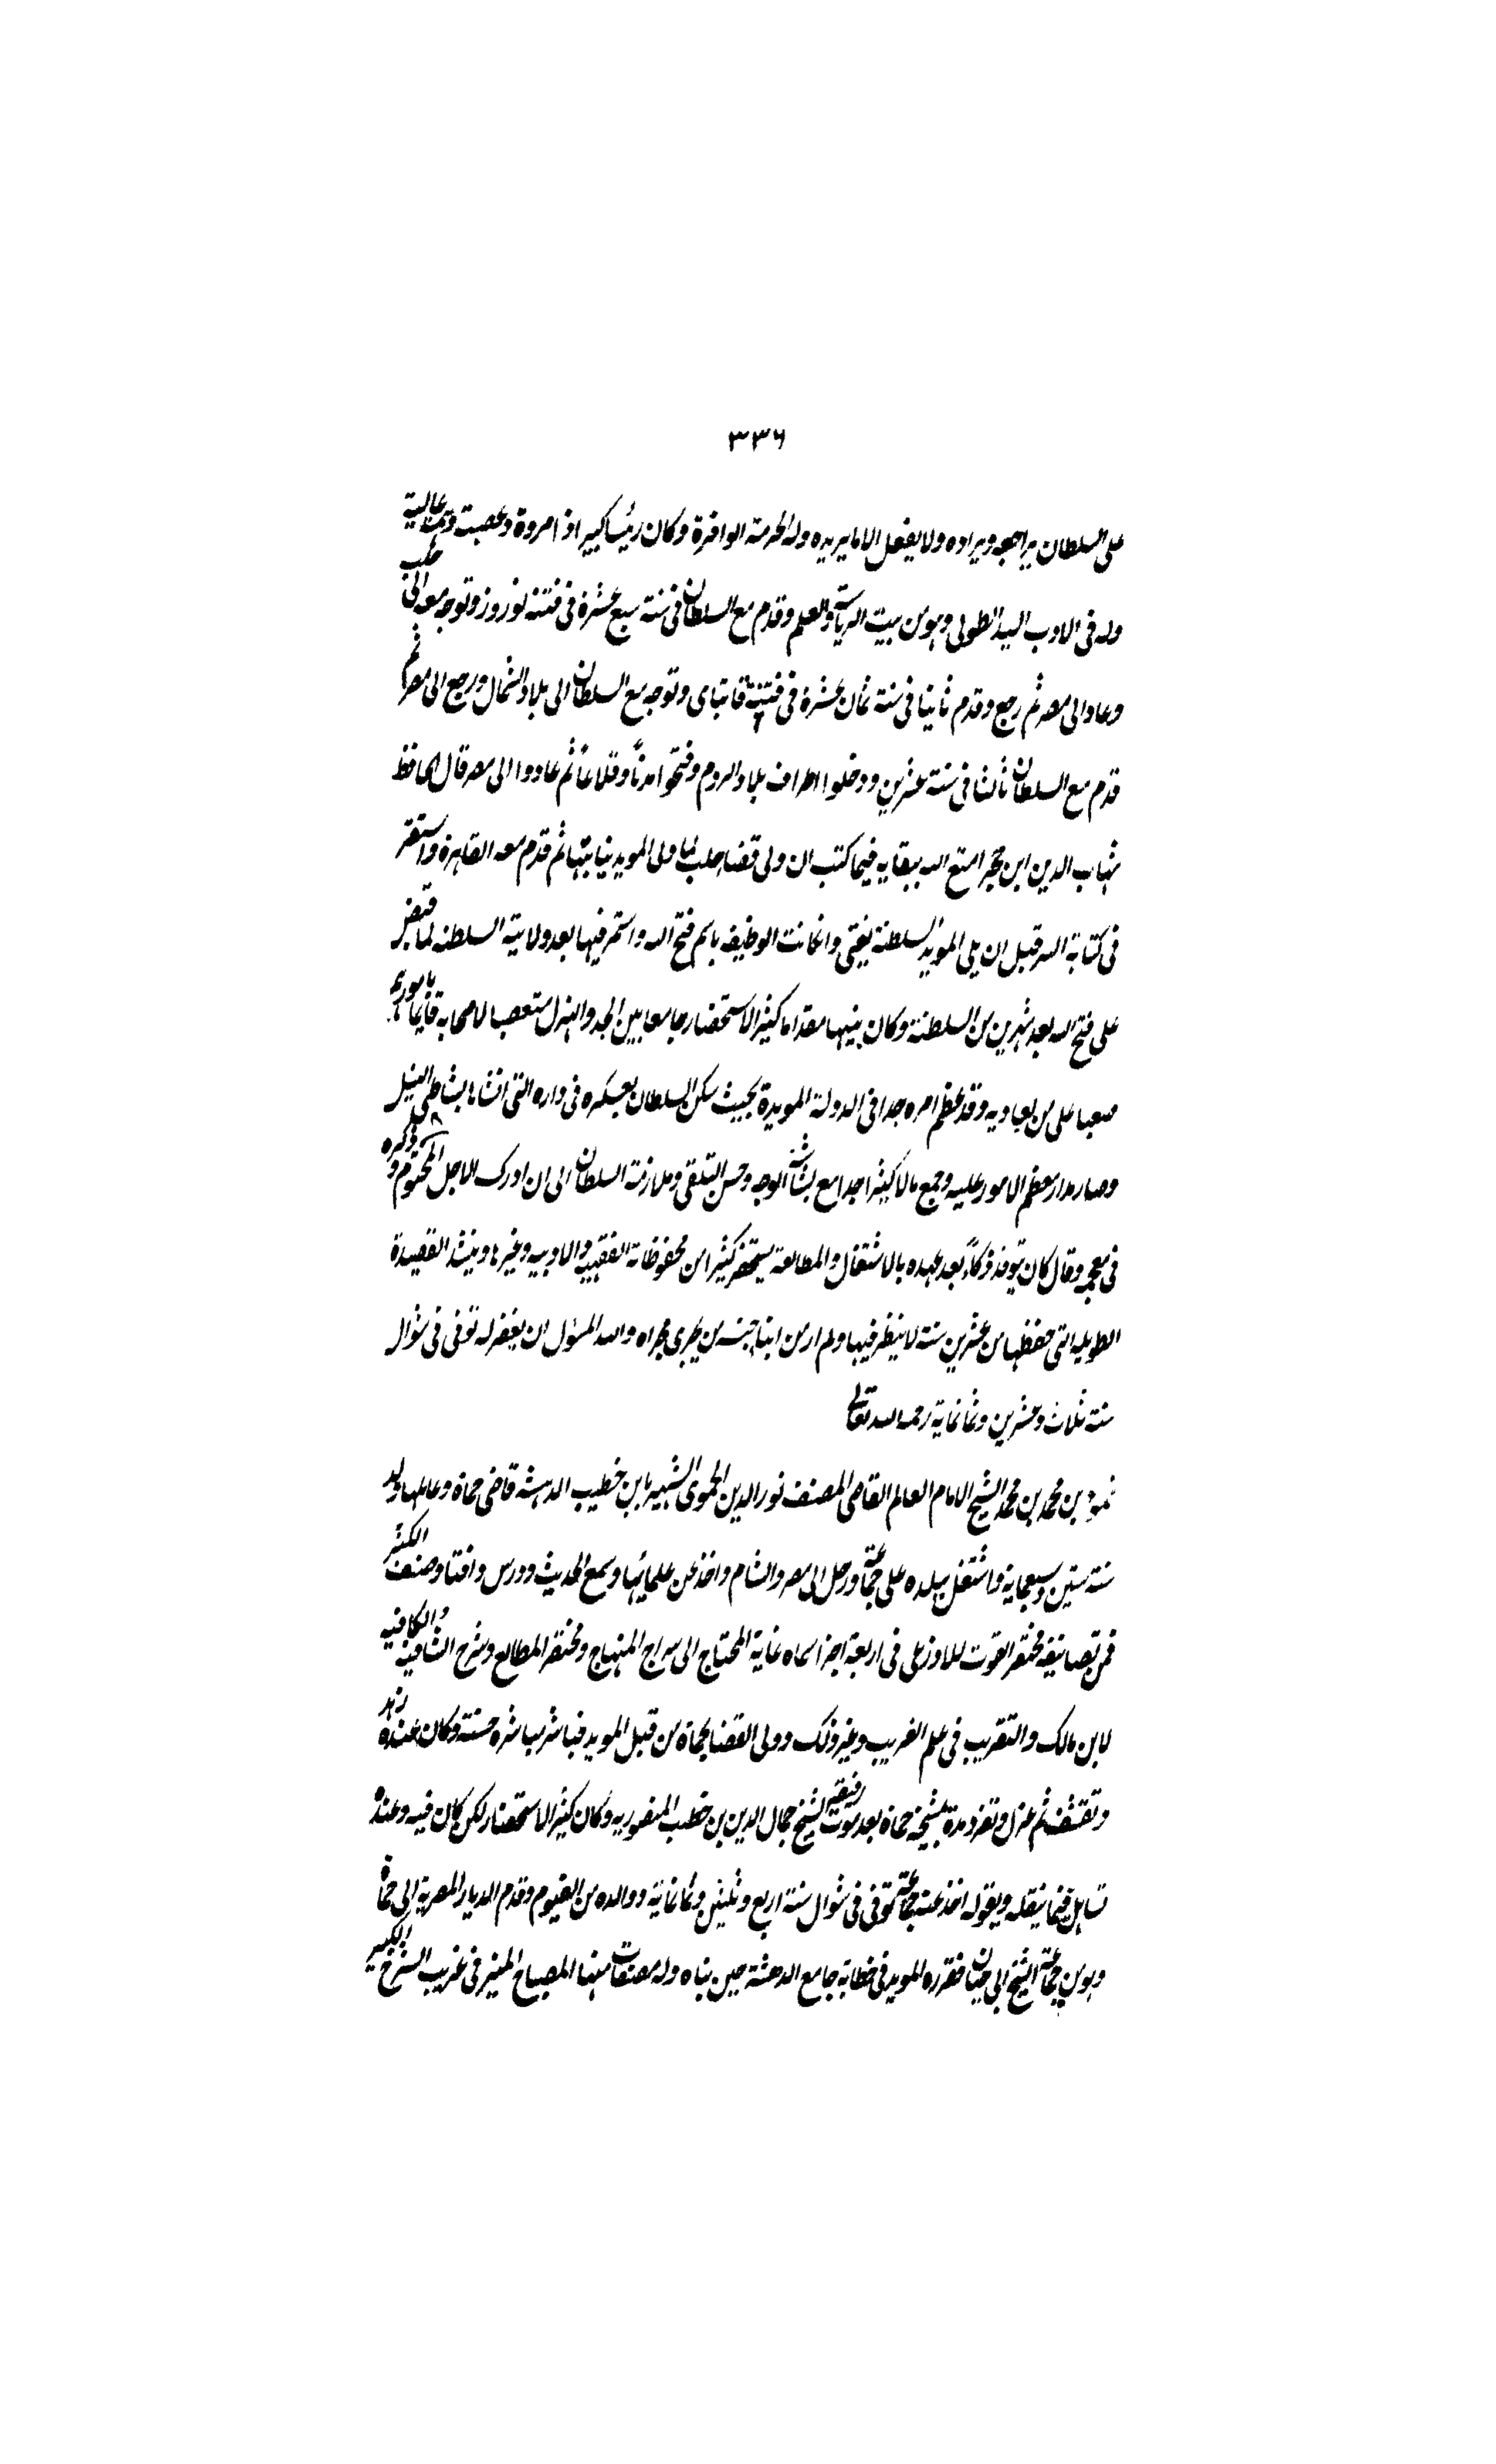 ٣٣٦
على السلطان يراجعه ويراده ولا يفعل الا ما يريده وله الحرمة الوافرة وكان رئيسا كبيرا ذا مروة وعصبت وهمة عالية
وله فى الادب اليد الطولى وهو من بيت الرياسة والعلم وقدم مع السلطان فى سنة سبع عشرة فى فتنة نوروز وتوجه معه الى حلب
وعاد الى مصر ثم رجع وقدم ثانيا فى سنة ثمان عشرة فى فتنة قانباى وتوجه مع السلطان الى بلاد الشمال ورجع الى مصر ثم
قدم مع السلطان ثالثا فى سنة عشرين ودخلوا اطراف بلاد الروم وفتحوا مدنًا وقلاعًا ثم عادوا الى مصر قال الحافظ
شهاب الدين ابن حجر امتع الله ببقايه فيما كتب ان ولى قضا حلب لما ولى المويد نيابتها ثم قدم معه القاهرة واستقر
فى كتابة السر قبل ان يلى المويد السلطنة يعنى وانكانت الوظيفه باسم فتح الله واستمر فيها بعد ولاية السلطنه لما قبض
على فتح الله بعد شهرين من السلطنة وكان بينهما مقداما كثير الاستحضار جامعا بين الجد والهزل متعصبا لاصحابه قايما بامورهم
صعبا على من يعاديه وقد عظم امره جدا فى الدولة المويدة بحيث سكن السلطان بعسكره فى داره التى انشاها بشاطى النيل
وصار مدار معظم الامور عليه وجمع مالا كثيرا جدا مع بشاشة الوجه وحسن التلقى وملازمة السلطان الى ان ادرك الاجل المحتوم وذكره
فى معجمه وقال كان يتوقد ذكاءً بعد عهده بالاشتغال والمطالعة يستحضر كثيرا من محفوظاته الفقهيه والادبيه وغيرها وينشد القصيدة
الطويله التى حفظها من عشرين سنة لا ينظر فيها ولم ار من ابنا جنسه من يجرى مجراه والله المسؤل ان يغفر له توفى فى شوال
سنة ثلاث وعشرين وثمانماية رحمه الله تعالى
محمود بن محمد بن محمد الشيخ الامام العالم القاضى المصنف نور الدين الحموى الشهير بابن خطيب الدهشه قاضى حماة وعاملها ولد
سنة ستين وسبعماية واشتغل ببلده على جماعة ورحل الى مصر والشام واخذ عن علمائها وسمع الحديث ودرس وافتا وصنف الكثير
فمن تصانيفه مختصر القوت للاوزعى فى اربعة اجزا سماه غاية المحتاج الى سراج المنهاج ومختصر المطالع وشرح الشافيه والكافيه
لابن مالك والتقريب فى علم الغريب وغير ذلك وولى القضا بحماة من قبل المويد فباشر مباشره حسنة وكان عنده زهد
وتقشف ثم عزل وتفرد مدة بمشيخة حماة بعد موت رفيقه الشيخ جمال الدين بن خطيب المنصوريه وكان كثير الاستحضار لكن كان فيه وعنده
تساهل فيما ينقله ويقوله اخذ عنه جماعة توفى فى شوال سنة اربع وثلثين وثمانماية ووالده من الفيوم وقدم الديار المصرية الى حماة
وهو من جماعة الشيخ ابى حيان فقرره المويد فى خطابة جامع الدهشة حين بناه وله مصنفات منها المصباح المنير فى غريب الشرح الكبير